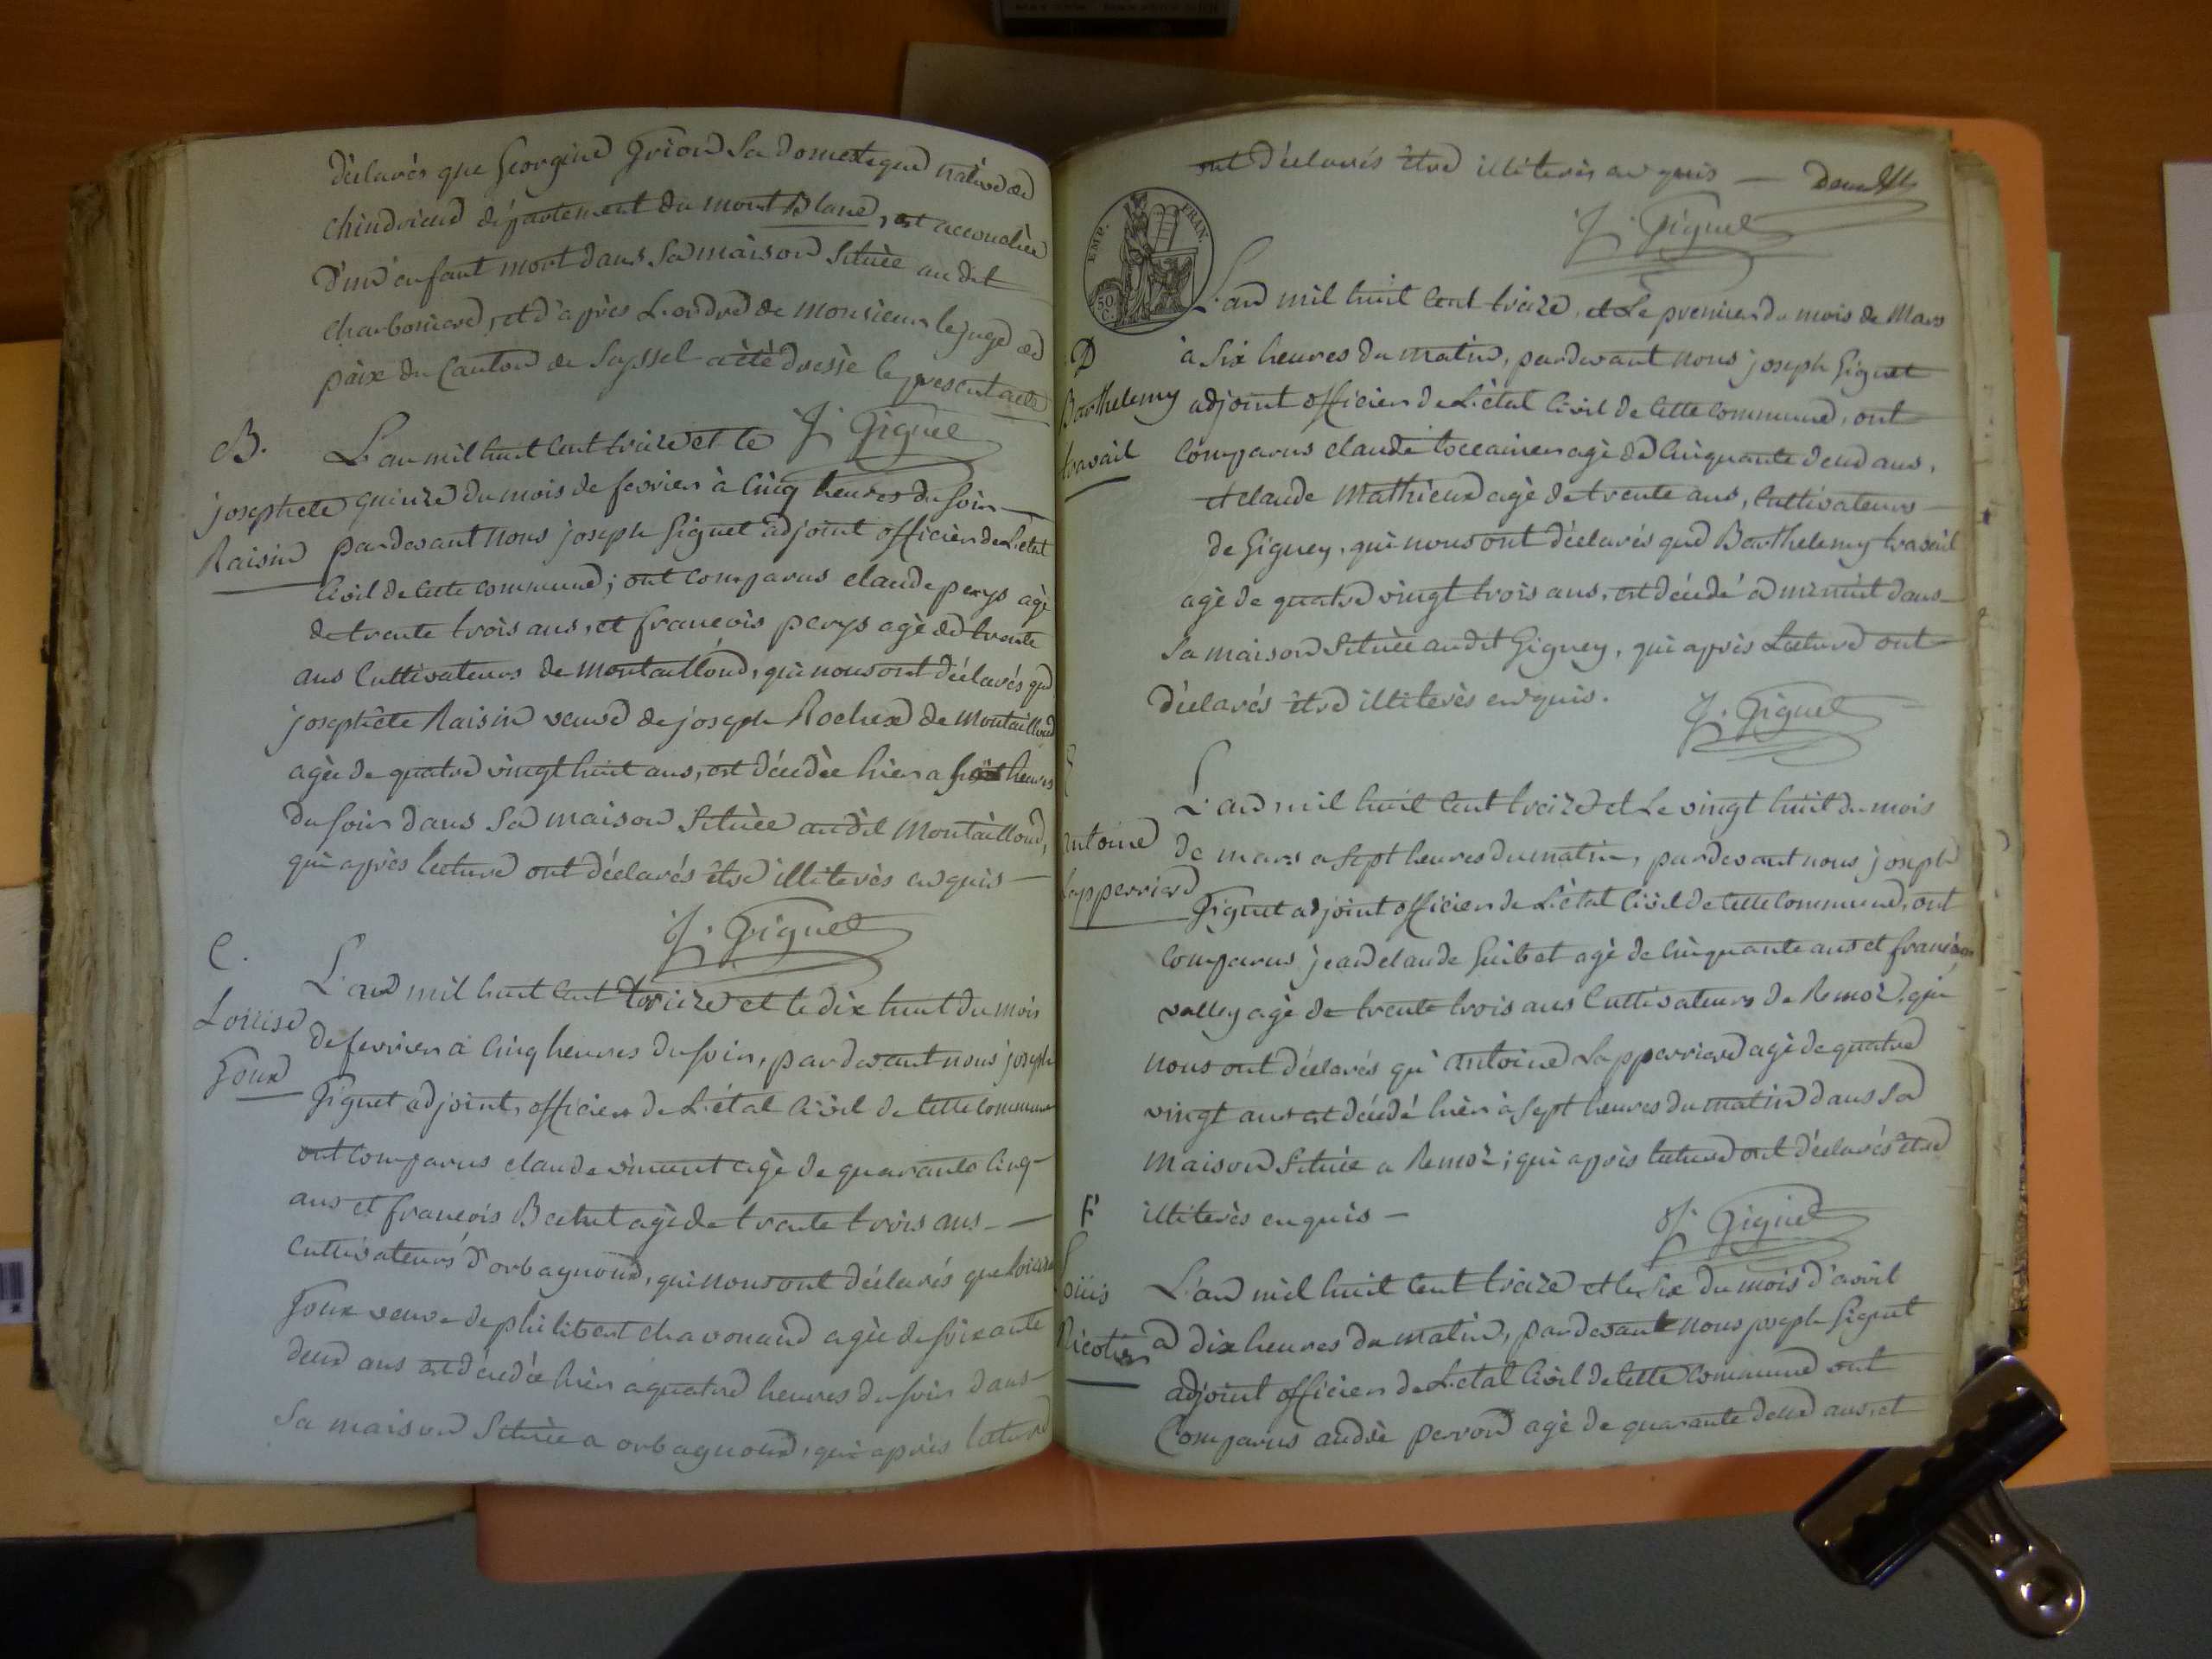 déclarés que Georgine Grion sa domestique native de
chindrieux département du mont Blanc, est accouchée
d'un enfant mort dans sa maison située au dit
charboniere, et d'après l'ordre de monsieur le juge de
paix du Canton de Seyssel a été dressé le present acte
J. Giguet
B.
josephete
Raisin
L'an mil huit cent treize et le
quinze du mois de fevrier à cinq heures du soir
pardevant nous joseph Giguet adjoint officier de l'etat
civil de cette commune; ont comparus claude perys agé
de trente trois ans, et francois perys agé de trente
ans cultivateurs de montailloud, qui nous ont déclarés que
josephète Raisin veuve de joseph Rochex de montailloud
agée de quatre vingt huit ans, est décédée hier a heures
du soir dans sa maison située audit Montailloud,
qui après lecture ont déclarés être illiterés enquis
J. Giguet
C.
Louise
Goux
L'an mil huit cent treize et le dix huit du mois
de fevrier à cinq heures du soir, pardevant nous joseph
Giguet adjoint officier de l'état civil de cette commune
ont comparus claude vincent agé de quarante cinq
ans et francois Bachet agé de trente trois ans
cultivateurs d'orbagnoux, qui nous ont déclarés que loise
Goux veuve de philibert chavonand agée de soixante
deux ans est décédée hier a quatre heures du soir dans
sa maison située a orbagnoux, qui après lecture
ont déclarés être illiterés enquis
J. Giguet
EMP. FRAN.
50 C.
D
Barthelemy
travail
L'an mil huit cent treize, et le premier du mois de Mars
à six heures du matin, pardevant nous joseph Giguet
adjoint officier de l'état civil de cette commune, ont
comparus claude toccanier agé de cinquante deux ans,
et claude Mathieux agé de trente ans, cultivateurs
de Gigney, qui nous ont déclarés que Barthelemy travail
agé de quatre vingt trois ans, est décédé a minuit dans
sa maison située audit Gigney, qui après lecture ont
déclarés être illiterés enquis.
J. Giguet
antoine
lapperriere
L'an mil huit cent treize et le vingt huit du mois
de mars a sept heures du matin, pardevant nous joseph
Giguet adjoint officier de l'état civil de cette commune, ont
comparus jean claude Guibet agé de cinquante ans et francois
valley agé de trente trois ans cultivateurs de Remoz, qui
nous ont déclarés qu'antoine Lapperriere agé de quatre
vingt ans est décédé hier à sept heures du matin dans sa
maison située a Remoz; qui après lecture ont déclarés être
illiterés enquis
J. Giguet
F
Louis
Nicotier
L'an mil huit cent treize et le six du mois d'avril
a dix heures du matin, pardevant nous joseph Giguet
adjoint officier de l'état civil de cette commune ont
Comparus andré perron agé de quarante deux ans, et